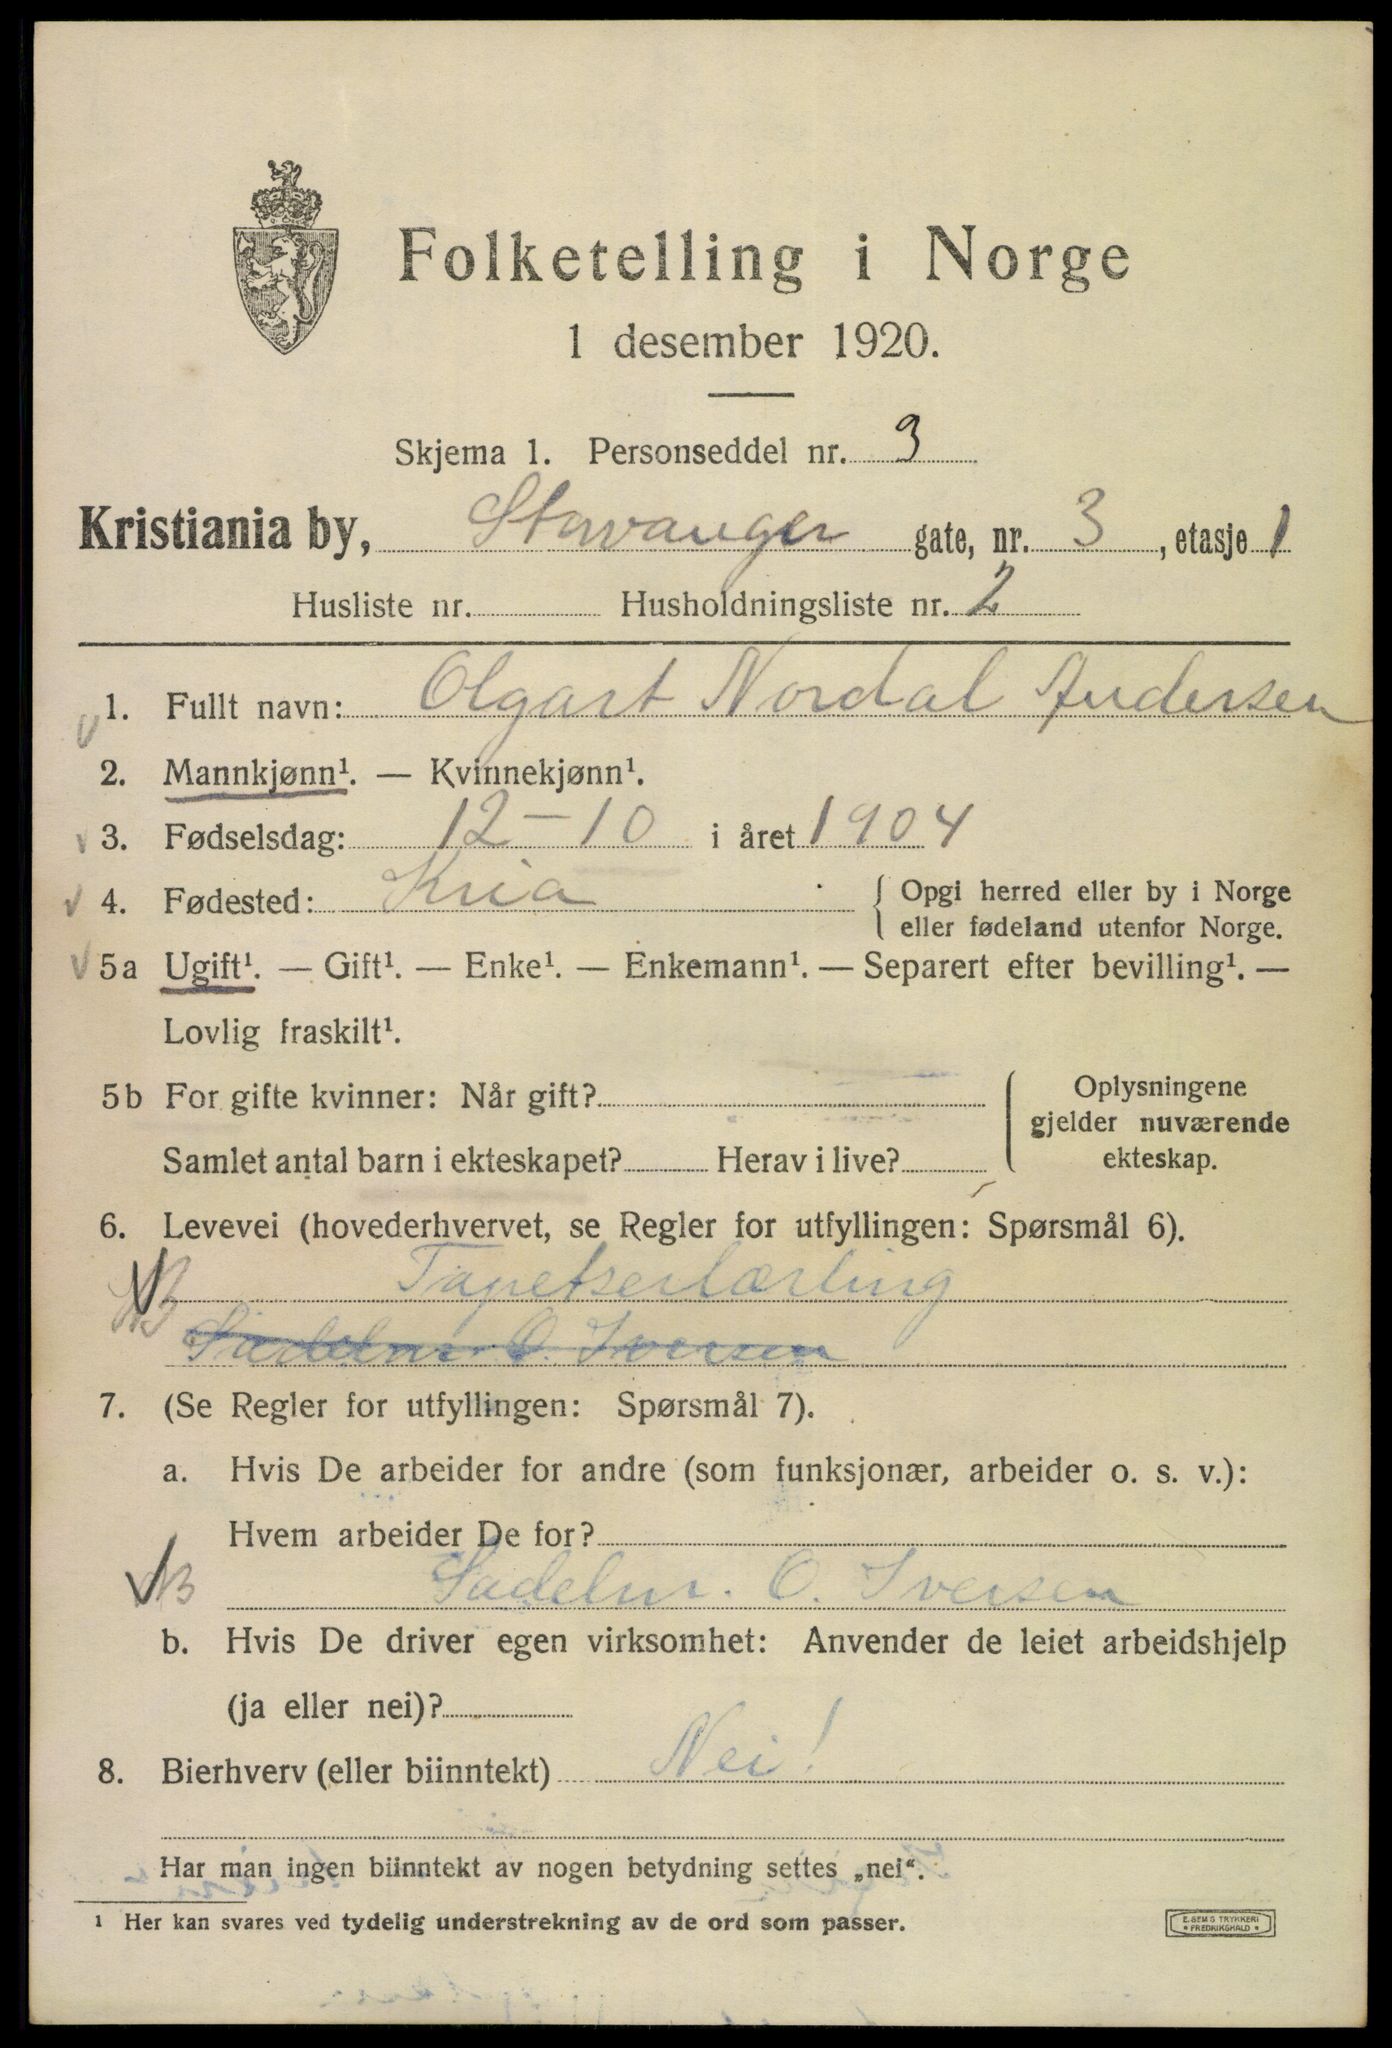 Folketelling i Norge
1 desember 1920.
Skjema 1. Personseddel nr. 3
Kristiania by, Stavanger gate, nr. 3, etasje 1
Husliste nr. Husholdningsliste nr. 2
1. Fullt navn: Olgart Nordal Andersen
2. Mannkjønn¹. — Kvinnekjønn¹.
3. Fødselsdag: 12-10 i året 1904
4. Fødested: Kria { Opgi herred eller by i Norge
eller fødeland utenfor Norge.
5a Ugift¹. — Gift¹. — Enke¹. — Enkemann¹. — Separert efter bevilling¹. —
Lovlig fraskilt¹.
5b For gifte kvinner: Når gift?
Samlet antal barn i ekteskapet? Herav i live?
Oplysningene
gjelder nuværende
ekteskap.
6. Levevei (hovederhvervet, se Regler for utfyllingen: Spørsmål 6).
Tapetserlærling
Sadelm. O. Iversen
7. (Se Regler for utfyllingen: Spørsmål 7).
a. Hvis De arbeider for andre (som funksjonær, arbeider o. s. v.):
Hvem arbeider De for?
Sadelm. O. Iversen
b. Hvis De driver egen virksomhet: Anvender de leiet arbeidshjelp
(ja eller nei)?
8. Bierhverv (eller biinntekt) Nei!
Har man ingen biinntekt av nogen betydning settes „nei“.
¹ Her kan svares ved tydelig understrekning av de ord som passer.
E. SEMS TRYKKERI
FREDRIKSHALD